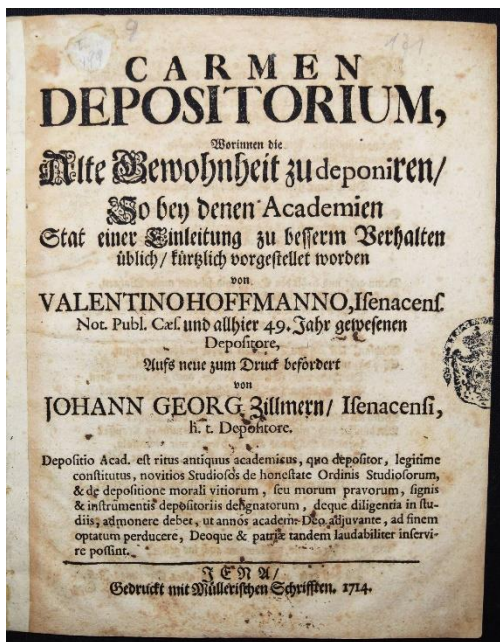 9
131
CARMEN
DEPOSITORIUM,
Worinnen die
Alte Gewohnheit zu deponiren/
So bey denen Academien
Stat einer Einleitung zu besserm Verhalten
üblich/ kürtzlich vorgestellet worden
von
VALENTINO HOFFMANNO, Isenacens.
Not. Publ. Cæs. und allhier 49. Jahr gewesenen
Depositore,
Aufs neue zum Druck befördert
von
JOHANN GEORG Zillmern/ Isenacensi,
h. t. Depositore.
Depositio Acad. est ritus antiquus academicus, quo depositor, legitime
constitutus, novitios Studiosos de honestate Ordinis Studiosorum,
& de depositione morali vitiorum, seu morum pravorum, signis
& instrumentis depositoriis designatorum, deque diligentia in stu-
diis, admonere debet, ut annos academ. Deo adjuvante, ad finem
optatum perducere, Deoque & patriæ tandem laudabiliter inservi-
re possint.
JENA/
Gedruckt mit Müllerischen Schrifften. 1714.